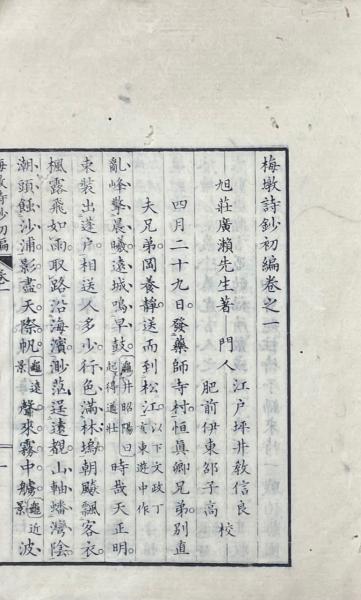 梅墩詩鈔初編卷之一
旭莊廣瀨先生著 門人 江戸坪井教信良 肥前伊東邵子高 校
四月二十九日。發藥師寺村。恒真卿兄弟。別直
夫兄弟。岡養靜送而到松江。以下文政丁亥東遊中作
亂峰擎晨曦。遠城鳴早鼓。龜井昭陽曰起得遒壯 時哉天正明。
束裝出蓬戶。相送人多少。行色滿林塢。朝飈飄客衣。
楓露飛如雨。取路沿海濱。渺茫逞遠覩。山軸蟠灣陰。
潮頭蝕沙浦。影盡天際帆。龜遠景 聲來霧中艣。龜近景 波
梅墩詩鈔初編 卷一 一